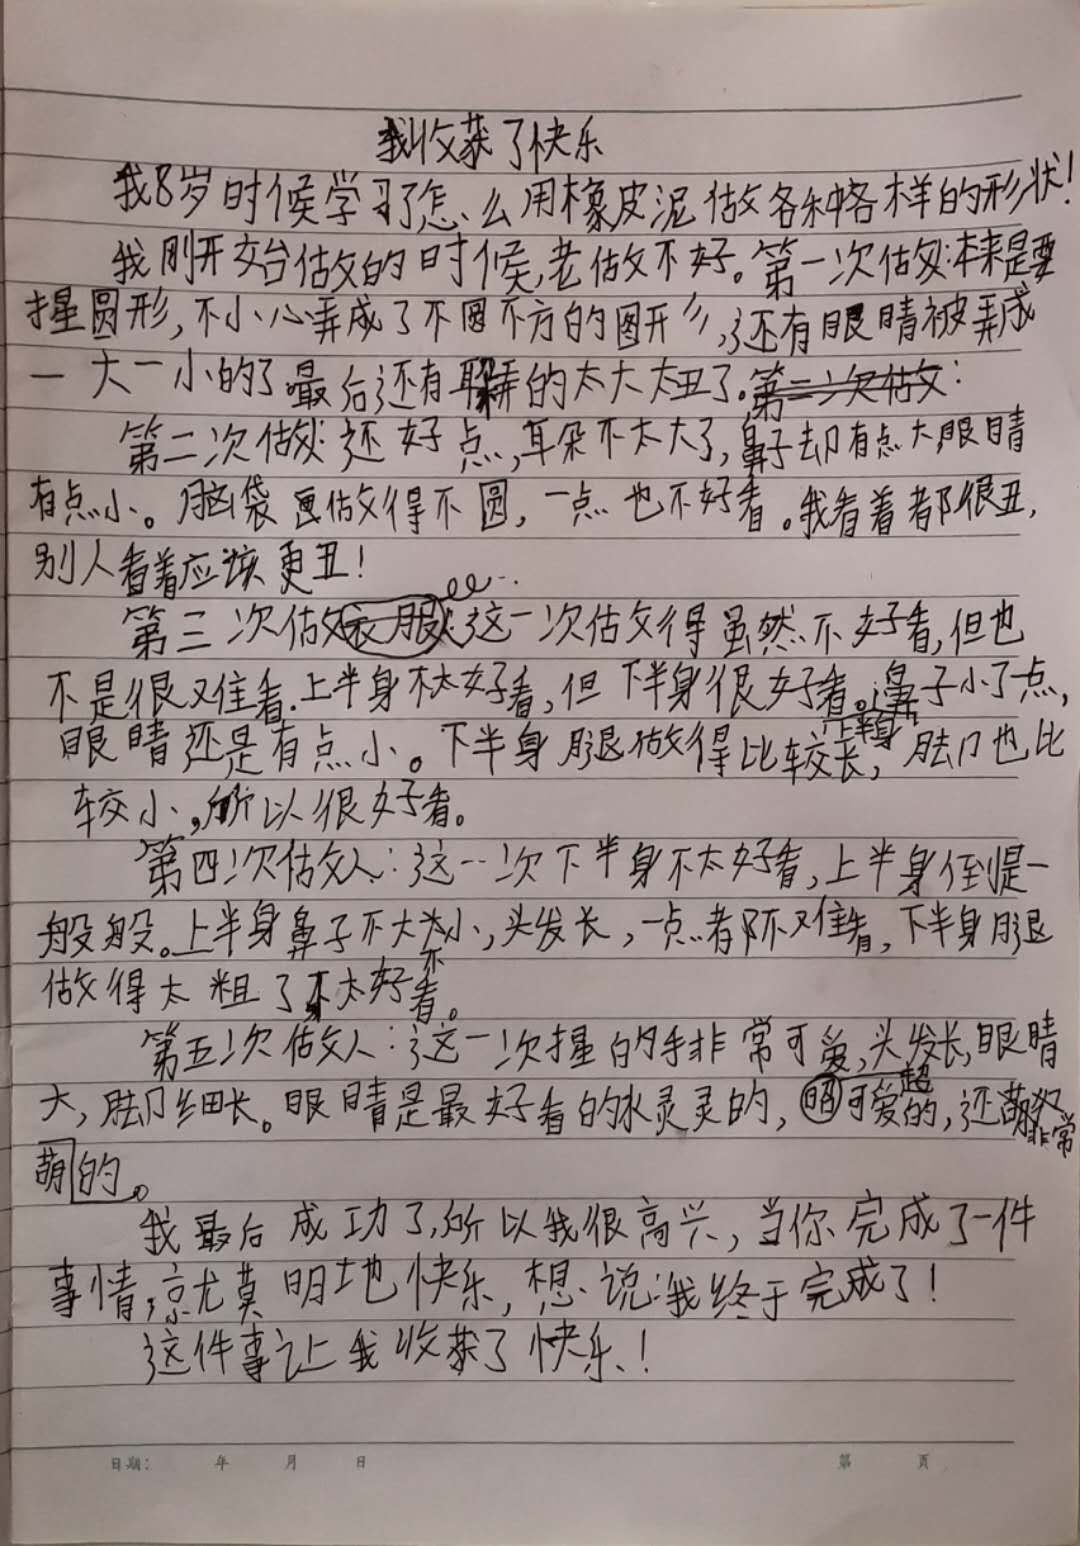 我收获了快乐
我8岁时候学习了怎么用橡皮泥做各种各样的形状!
我刚开始做的时候,老做不好。第一次做:本来是要
捏圆形,不小心弄成了不圆不方的图形,还有眼睛被弄成
一大一小的了最后还有耳朵弄的太大太丑了。第二次做:
第二次做:还好点,耳朵不太大了,鼻子却有点大眼睛
有点小。脑袋做得不圆,一点也不好看。我看着都很丑,
别人看着应该更丑!
第三次做衣服:这一次做得虽然不好看,但也
不是很难看.上半身不太好看,但下半身很好看。鼻子小了一点,
"上半身"
眼睛还是有点小。下半身腿做得比较长,脚也比
较小,所以很好看。
第四次做人:这一次下半身不太好看,上半身倒是一
般般。上半身鼻子不大不小,头发长,一点都不难看,下半身腿
做得太粗了不太好看。
第五次做人:这一次捏的手非常可爱,头发长,眼睛
大,脚细长。眼睛是最好看的水灵灵的,超可爱的,还萌
非常
萌的。
我最后成功了,所以我很高兴,当你完成了一件
事情,就莫明地快乐,想说:我终于完成了!
这件事让我收获了快乐!
日期: 年 月 日 第 页